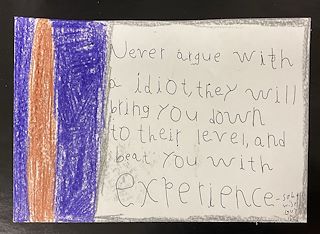 Never argue with
a idiot, they will
bring you down
to their level, and
beat you with
experience-